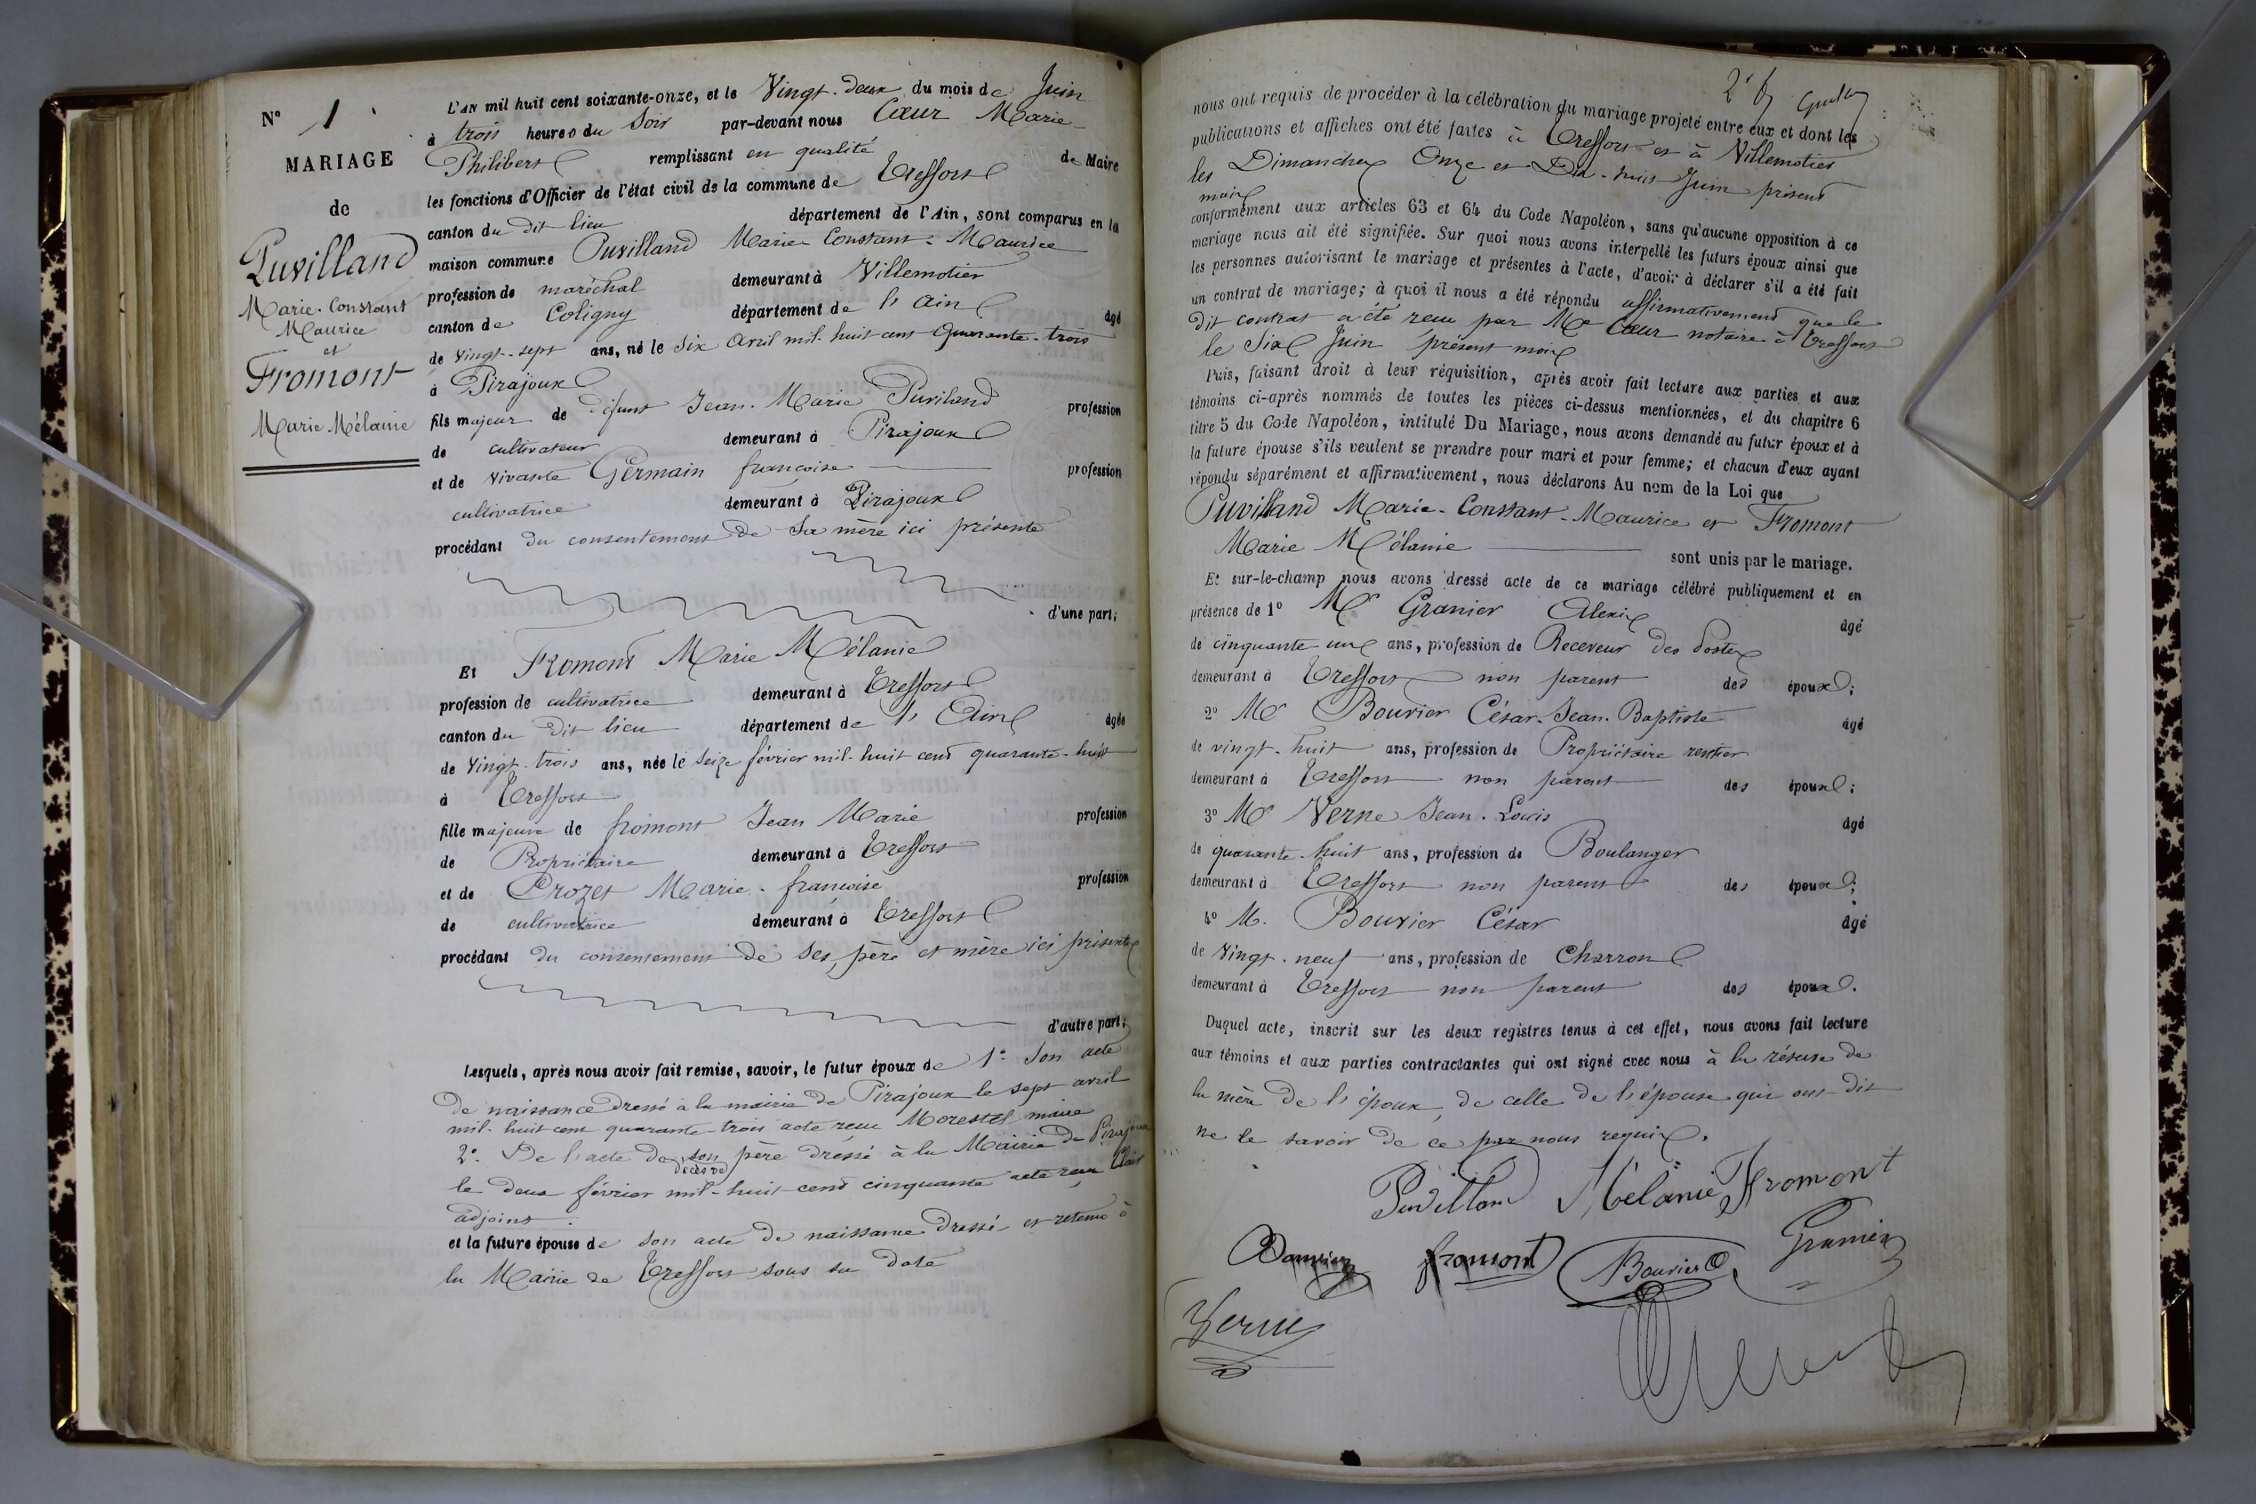 N° 1
MARIAGE
de
Puvilland
Marie-Constant
Maurice
et
Fromont
Marie Mélanie
L'AN mil huit cent soixante-onze, et le Vingt-deux du mois de Juin
à trois heures du Soir par-devant nous Cœur Marie-
Philibert remplissant en qualité de Maire
les fonctions d'Officier de l'état civil de la commune de Treffort
canton du dit lieu département de l'Ain, sont comparus en la
maison commune Puvilland Marie-Constant-Maurice
profession de maréchal demeurant à Villemotier
canton de Coligny département de l'Ain âgé
de vingt-sept ans, né le Six Avril mil-huit cent Quarante-trois
à Pirajoux
fils majeur de défunt Jean-Marie Puviland profession
de cultivateur demeurant à Pirajoux
et de vivante Germain françoise profession
cultivatrice demeurant à Pirajoux
procédant du consentement de Sa mère ici présente
d'une part;
Et Fromont Marie Mélanie
profession de cultivatrice demeurant à Treffort
canton du dit lieu département de l'Ain âgée
de Vingt-trois ans, née le Seize février mil-huit cent quarante-huit
à Treffort
fille majeure de fromont Jean Marie profession
de Propriétaire demeurant à Treffort
et de Prozet Marie-françoise profession
de cultivatrice demeurant à Treffort
procédant du consentement de Ses père et mère ici présents
d'autre part;
Lesquels, après nous avoir fait remise, savoir, le futur époux de 1° Son acte
de naissance dressé à la mairie de Pirajoux le sept avril
mil-huit cent quarante-trois acte reçu Morestel maire
2° De l'acte de décès de son père dressé à la Mairie de Pirajoux
le deux février mil-huit cent cinquante acte reçu
adjoint.
et la future épouse de son acte de naissance dressé et retenu à
la Mairie de Treffort sous sa date
2e f
nous ont requis de procéder à la célébration du mariage projeté entre eux et dont les
publications et affiches ont été faites à Treffort et à Villemotier
les Dimanches Onze et Dix-huit Juin présent
mois
conformément aux articles 63 et 64 du Code Napoléon, sans qu'aucune opposition à ce
mariage nous ait été signifiée. Sur quoi nous avons interpellé les futurs époux ainsi que
les personnes autorisant le mariage et présentes à l'acte, d'avoir à déclarer s'il a été fait
un contrat de mariage; à quoi il nous a été répondu affirmativement que le
dit contrat a été reçu par Me Cœur notaire à Treffort
le Six Juin présent mois
Puis, faisant droit à leur réquisition, après avoir fait lecture aux parties et aux
témoins ci-après nommés de toutes les pièces ci-dessus mentionnées, et du chapitre 6
titre 5 du Code Napoléon, intitulé Du Mariage, nous avons demandé au futur époux et à
la future épouse s'ils veulent se prendre pour mari et pour femme; et chacun d'eux ayant
répondu séparément et affirmativement, nous déclarons Au nom de la Loi que
Puvilland Marie-Constant-Maurice et Fromont
Marie Mélanie sont unis par le mariage.
Et sur-le-champ nous avons dressé acte de ce mariage célébré publiquement et en
présence de 1° Mr Granier Alexis âgé
de cinquante un ans, profession de Receveur des Postes
demeurant à Treffort non parent des époux;
2° Mr Bouvier César-Jean-Baptiste âgé
de vingt-huit ans, profession de Propriétaire rentier
demeurant à Treffort non parent des époux;
3° Mr Verne Jean-Louis âgé
de quarante-huit ans, profession de Boulanger
demeurant à Treffort non parent des époux;
4° M. Bouvier César âgé
de Vingt-neuf ans, profession de Charron
demeurant à Treffort non parent des époux.
Duquel acte, inscrit sur les deux registres tenus à cet effet, nous avons fait lecture
aux témoins et aux parties contractantes qui ont signé avec nous à la réserve de
la mère de l'époux, de celle de l'épouse qui ont dit
ne le savoir de ce par nous requis.
Puvilland Mélanie Fromont
Bouvier fromont Bouvier C. Granier
Verne